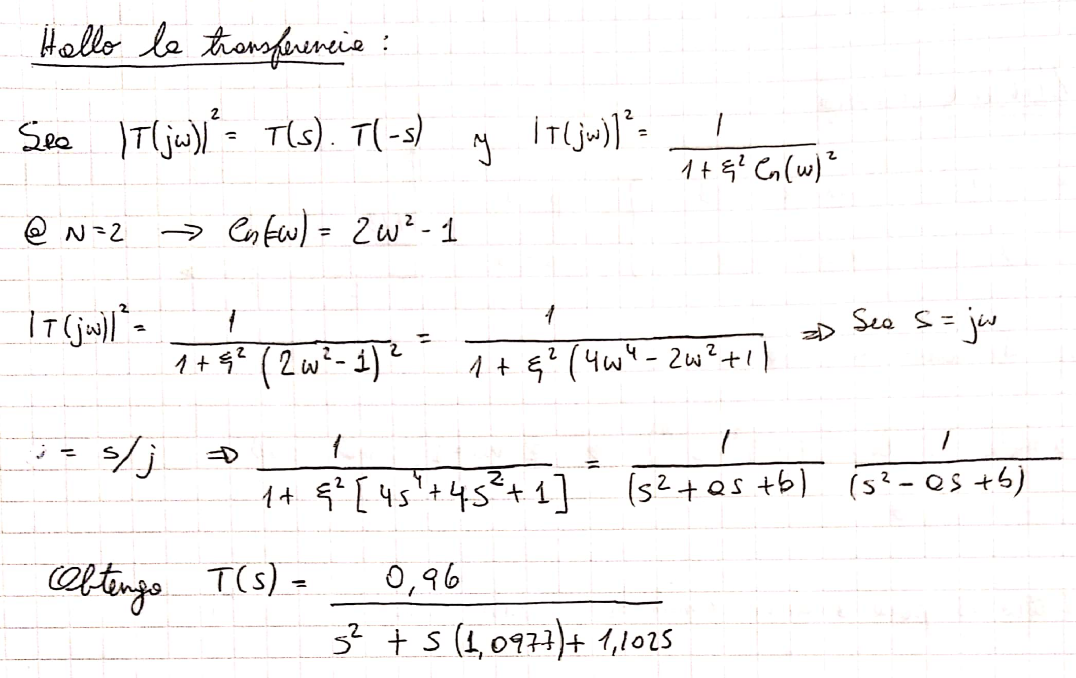 Hallo la transferencia :
Sea |T(jω)|² = T(s) . T(-s) y |T(jω)|² = 1 / (1 + ξ² Cn(ω)²)
@ N=2 → Cn(ω) = 2ω² - 1
|T(jω)|² = 1 / (1 + ξ² (2ω² - 1)²) = 1 / (1 + ξ² (4ω⁴ - 2ω² + 1)) ⇒ Sea s = jω
= s/j ⇒ 1 / (1 + ξ² [4s⁴ + 4s² + 1]) = 1 / (s² + as + b) 1 / (s² - as + b)
Obtengo T(s) = 0,96 / (s² + s (1,0977) + 1,1025)